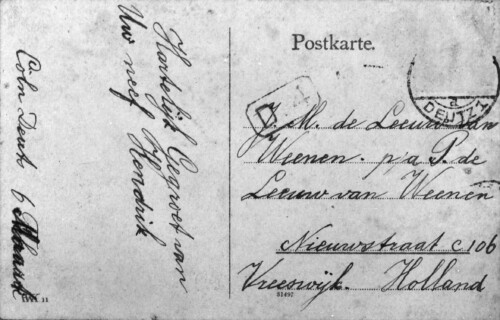 Cöln Deutz 6 Maart
Hartelijk Gegroet van
Uw neef Hendrik
Postkarte.
DEUTZ 1
a
D. M. de Leeuw van
Weenen. p/a P. de
Leeuw van Weenen
Nieuwstraat C 106
Vreeswijk. Holland
11
31492